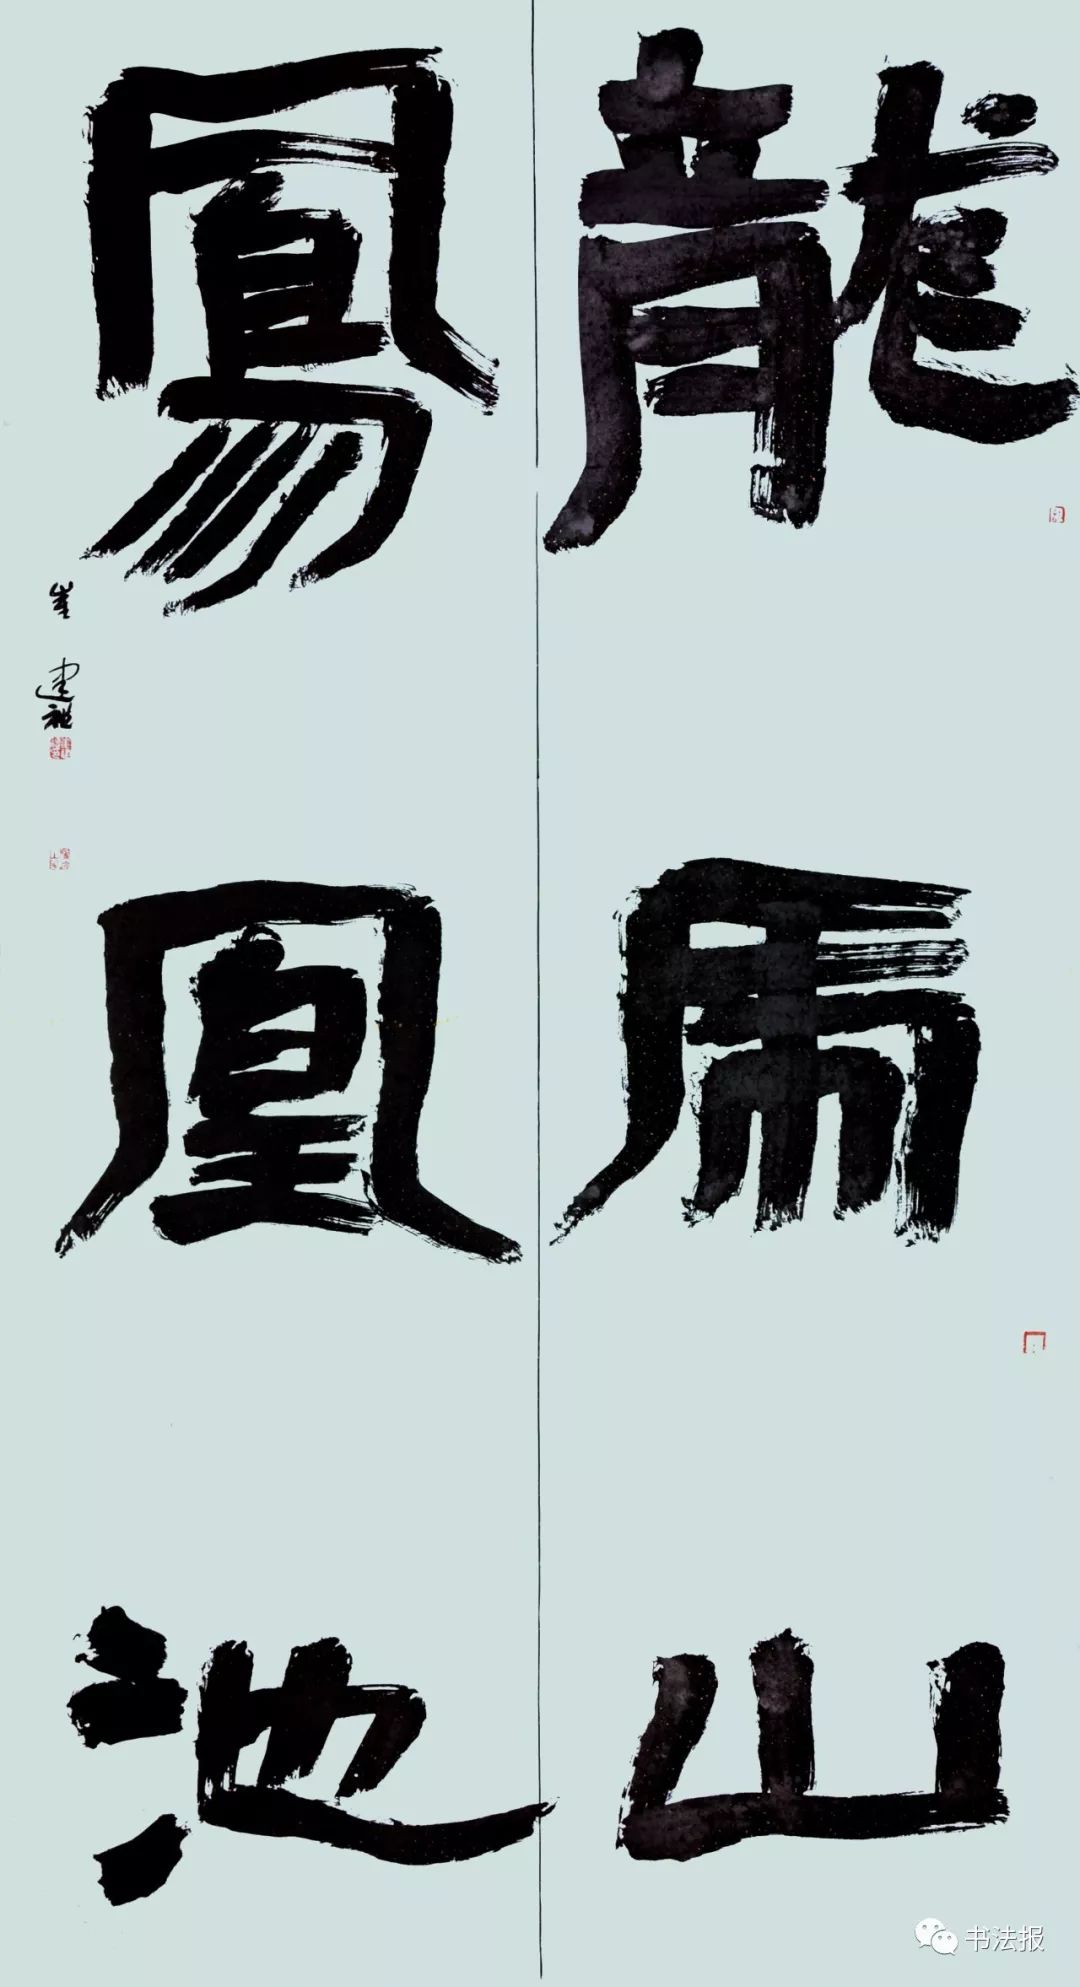 龍乕山
鳳凰池
崔建
书法报